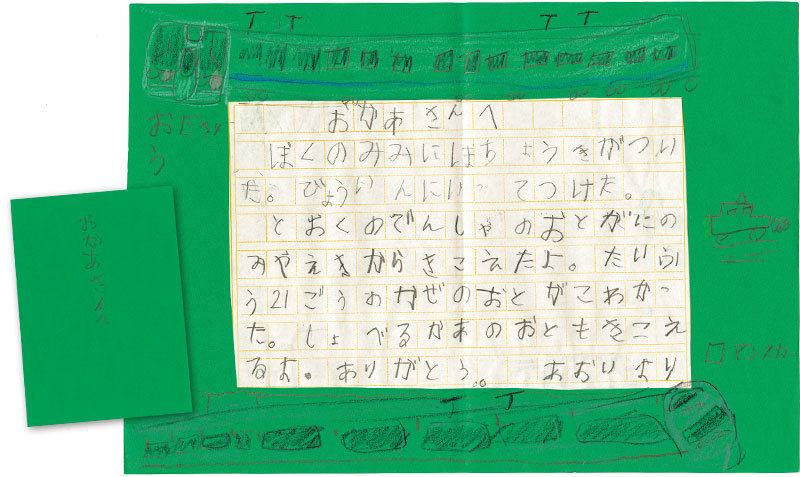 おかあさんへ
ぼくのみみにほちょうきがつい
た。びょういんにいってつけた。
とおくのでんしゃのおとがにの
みやえきからきこえたよ。たいふ
う21ごうのかぜのおとがこわかっ
た。しょべるかあのおともきこえ
るよ。ありがとう。 あおいより
おかあさんへ